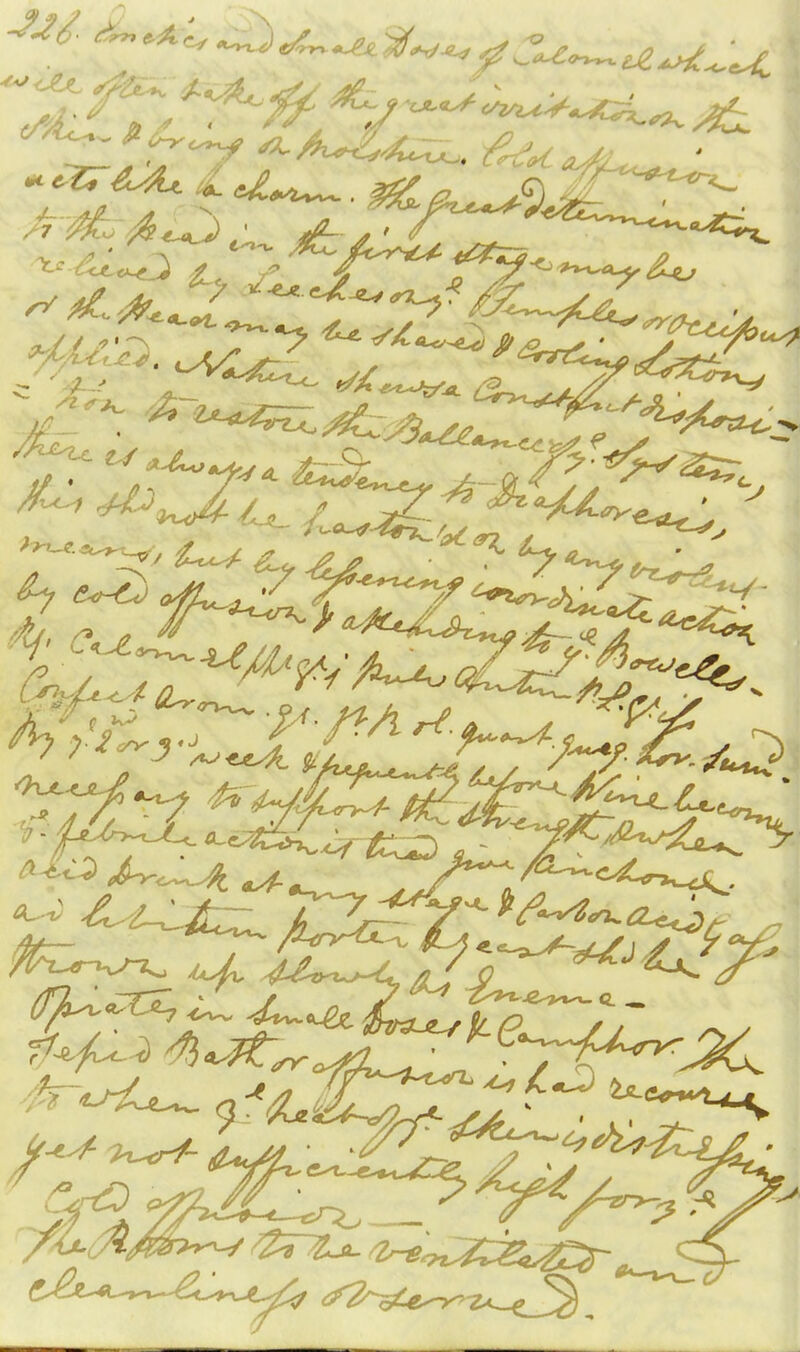 226. Emetics and Small Doses of Calomel which
will often take off the great irritation on the
Skin & bring on Moisture. Cold affusion
acts like a charm. The great Determination
to the Head in the first Stage may be
relieved by Leeches on ye Temples or Occiput
or the Head may be shaved & Cooling Lotions
applied. Nature shews a Constant disposi=
=tion to restore the Ballance of ye System,
there is always a tendency to Diaphoresis,
this shd not be hasten'd on by any violent
means, but by lessening inordinate action
by cold affusion & attending to ye Bowells.
Calomel Pulv Antim
Confect Arom. quart. hor. Sumd.
By ye 2nd or 3d week & frequently before Wine becomes
necessary to support the Strength, & when
ye febrile action is tired give Cinchona.
acid drink at any stage & Carbon Acid Gass
ad libitum porter & yeast shd be
thrown up slowly as Enema -
Opiates in Small Doses & Camphor. The
Tepid Bath or affusion is had recourse
to when ye heat of ye Skin is distressing
yet not sufficiently high for ye
Cold affusion —
The Rooms to be ventilated and
cleanliness observed.